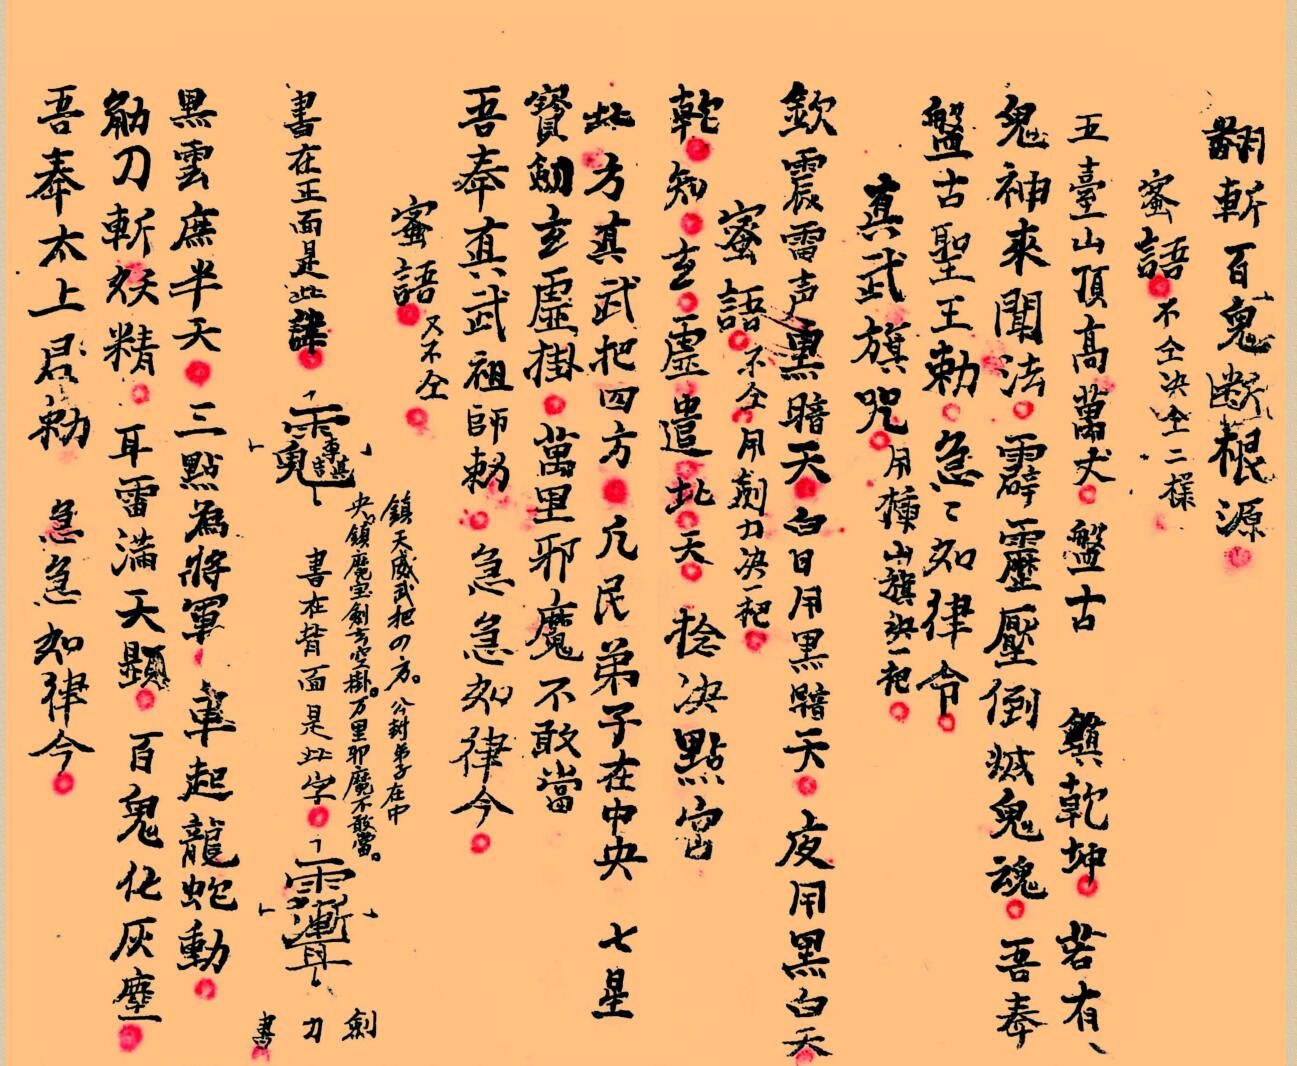 翻斬百鬼断根源
蜜語不仝决仝二樣
五臺山頂高萬丈 盤古 鎮乾坤 若有
鬼神来聞法 霹靂壓倒滅鬼魂 吾奉
盤古聖王勅 急〻如律令
真武旗咒用 山旗訣一把
欽震雷声黑暗天白日用黑暗天 夜用黑白天
蜜語不仝用剑刀决一把
乾知玄虚遣北天 捻决點宫
北方真武把四方 凡民弟子在中央 七星
寶劍玄虚掛 萬里邪魔不敢當
吾奉真武祖師勅 急急如律令
蜜語又不仝
鎮天威武把四方。公封弟子在中
央。鎮魔宝劍玄空掛。万里邪魔不敢當。
書在正面是此諱
書在背面是此字
劍
刀
書
黑雲庶半天 三點為將軍 車起龍蛇動
刀斬妖精 耳雷滿天 百鬼化灰塵
吾奉太上君勅 急急如律令